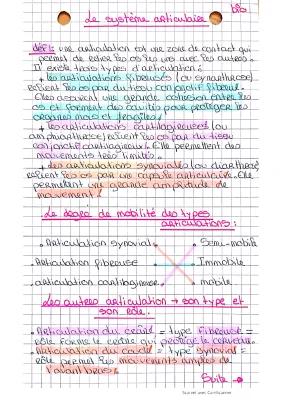 Le système articulaire
déf: une articulation est une zone de contact qui
permet de relier les os les uns avec les autres.
Il existe trois types d'articulation :
• les articulations fibreuses (ou synarthrose)
relient les os par du tissu conjonctif fibreux.
Elles assurent une grande cohésion entre les
os et forment des cavités pour protéger les
organes mous et fragiles.
• les articulations cartilagineuses (ou
amphiarthrose) relient les os par du tissu
conjonctif cartilagineux. Elle permettent des
mouvements très limités.
• les articulations synoviales (ou diarthrose)
relient les os par une capsule articulaire. Elle
permettent une grande amplitude de
mouvement.
Le degré de mobilité des types
articulations :
• Articulation synovial
• Semi-mobile
• Articulation fibreuse
• Immobile
• articulation cartilagineuse
• mobile
Les autres articulation → son type et
son rôle.
• Articulation du crâne = type fibreuse =
rôle forme le crâne qui protège le cerveau.
• Articulation du coude = type synovial =
rôle permet les mouvements amples de
l'avant bras.
Suite →
Scanned with CamScanner